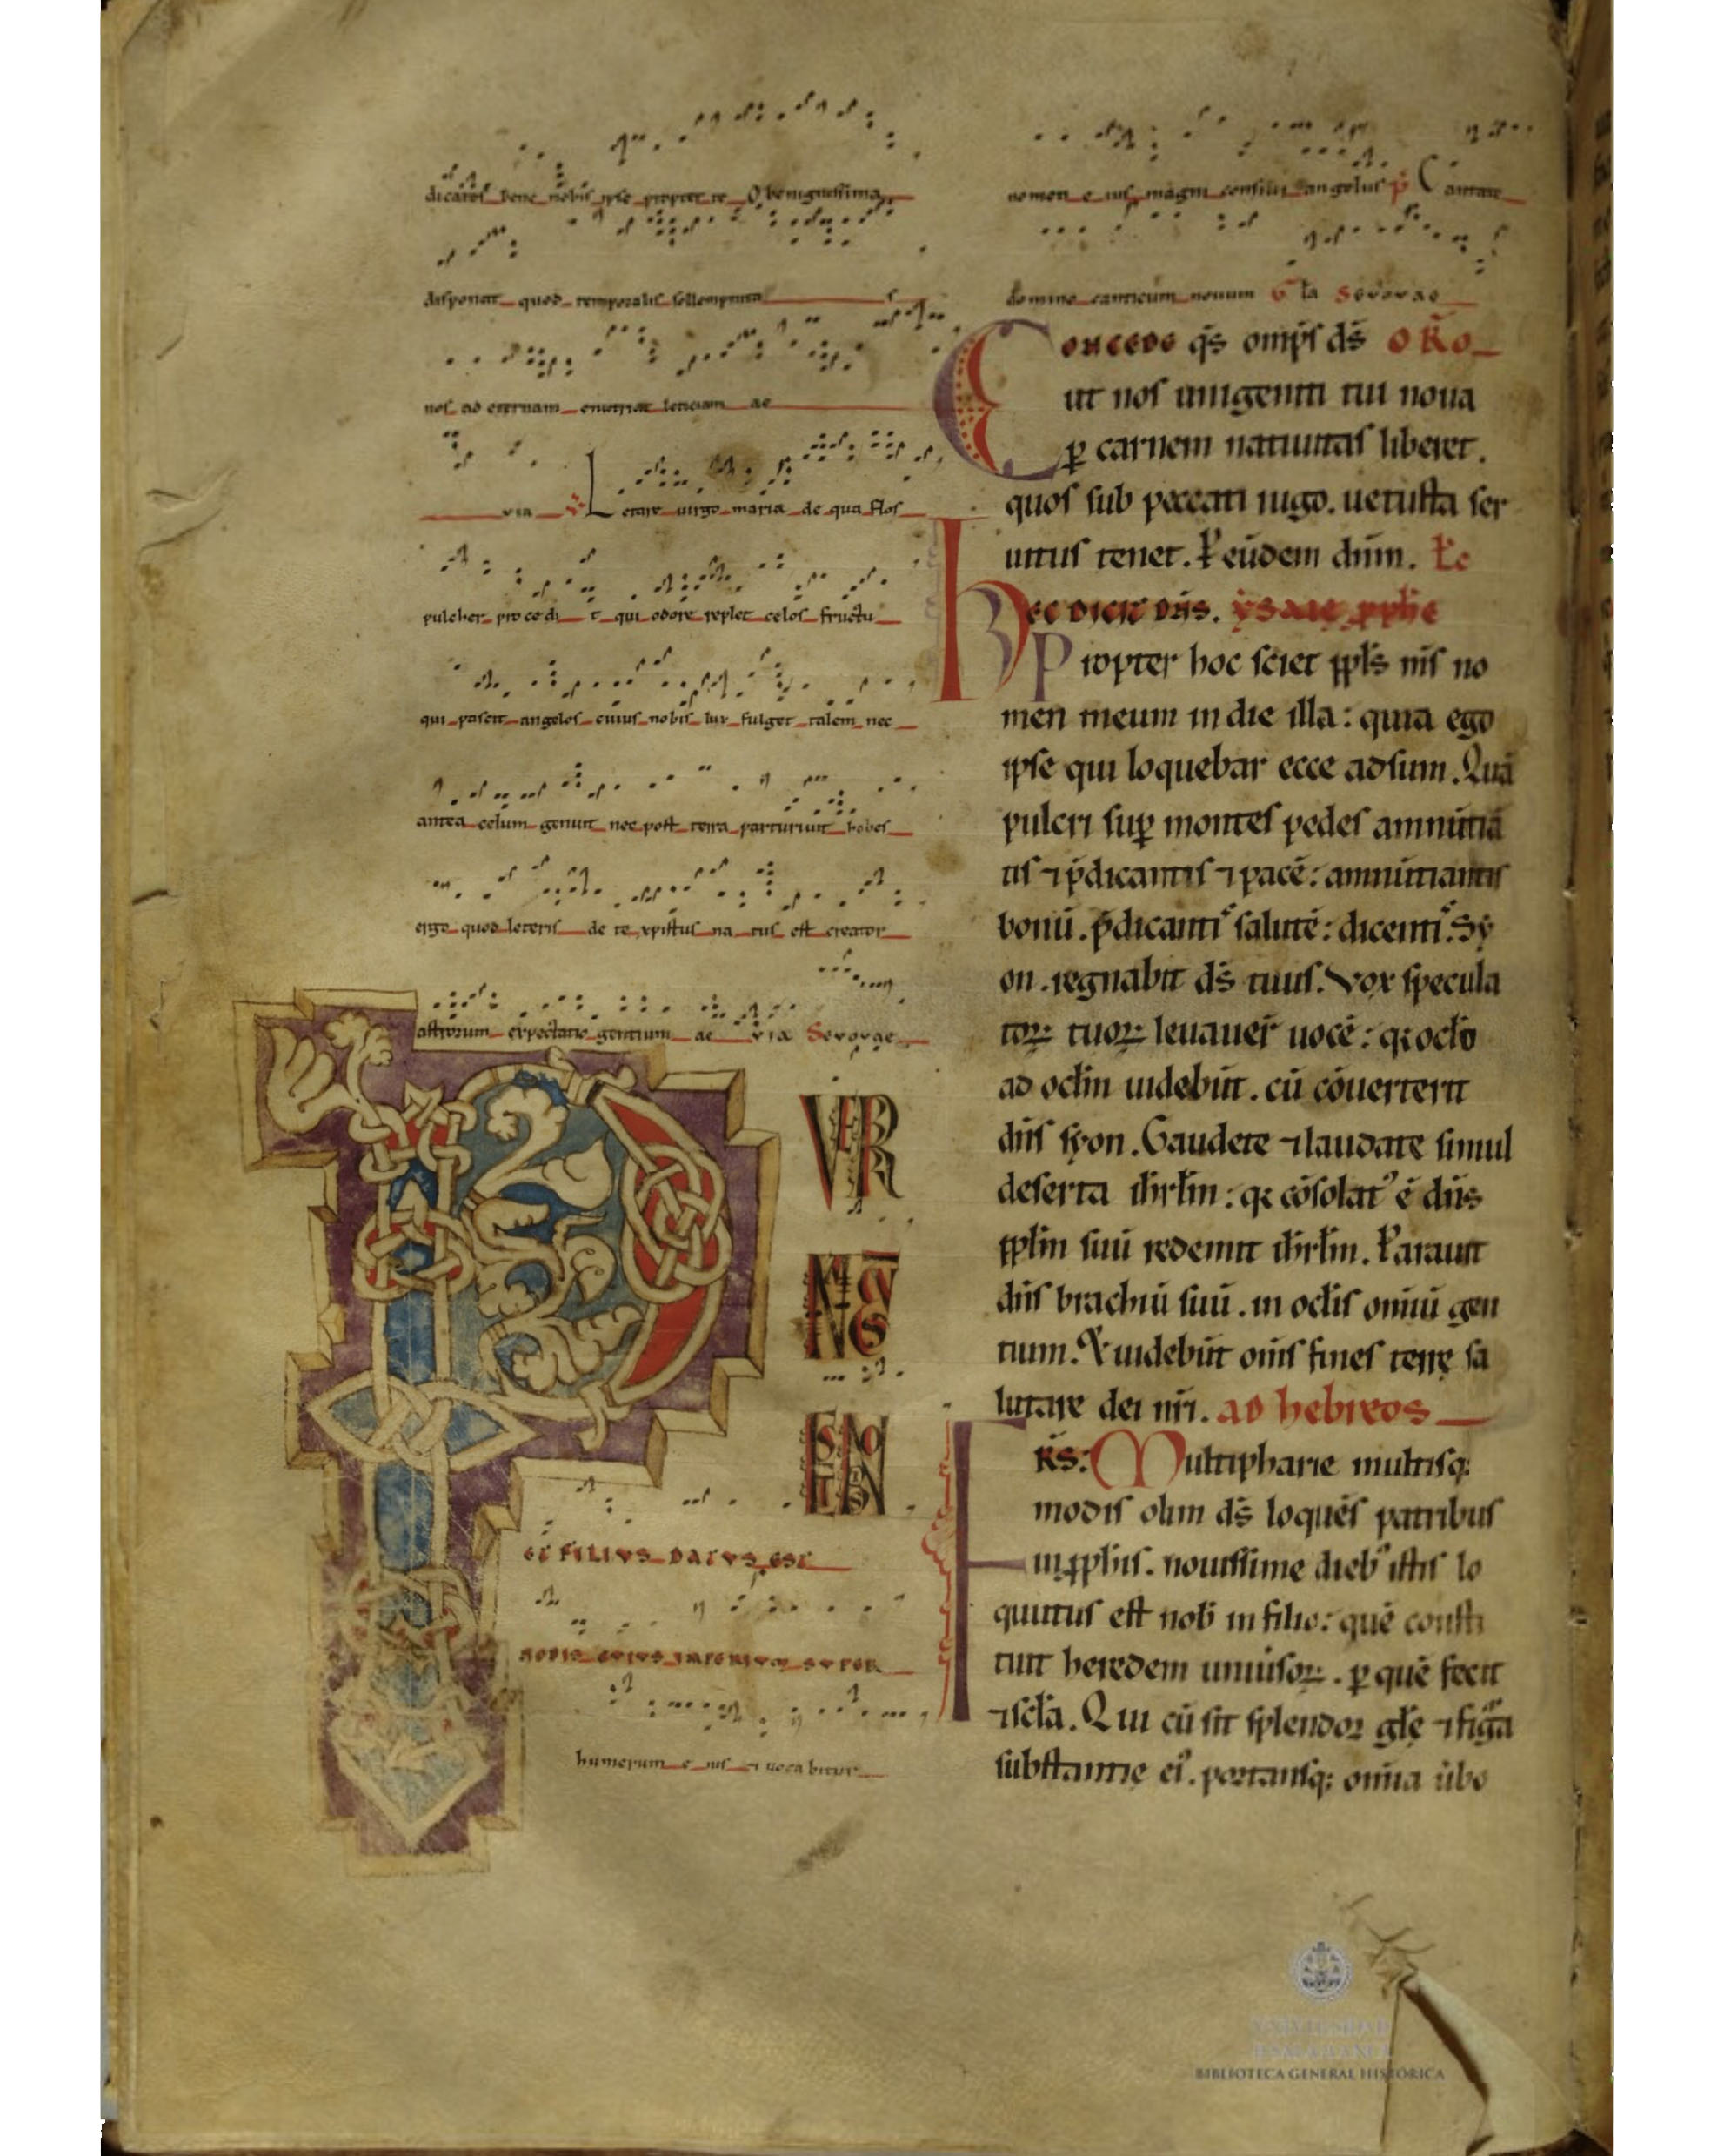 dicatof bene nobis ipse propter te O benignissima
disponat quod temporalis sollempnitas
nos ad eternam
via V Letare virgo maria de qua flos
pulcher procedit qui odore replet celos fructu
qui pascit angelos cuius nobis lux fulget talem nec
antea celum genuit nec post terra parturiuit habes
ergo quod leteris de te xpistus natus est creator
astrorum expectatio gentium ae via Seuouae
PVER
NATVS EST NOBIS
ET FILIVS DATVS EST
NOBIS CVIVS IMPERIVM SVPER
humerum eius ⁊ uocabitur
nomen eius magni consilii angelus p̄ Cantate
domino canticum nouum Seuouae
Concede q̄s omp̄s ds̄ ORO
ut nos unigeniti tui noua
ꝑ carnem natiuitas liberet.
quos sub peccati iugo. uetusta ser
uitus tenet. P̄ eūdem dn̄m. Le
Hec dicit dn̄s. ysaie pph̄e
Propter hoc sciet ppl̄s ms̄ no
men meum in die illa: quia ego
ipse qui loquebar ecce adsum. Quā
pulcri suꝑ montes pedes annūtiā
tis ⁊ p̄dicantis ⁊ pacē: annūtiantis
bonū. p̄dicanti˜ salutē: dicenti˜. Sy
on. regnabit ds̄ tuus. Vox specula
toꝝ tuoꝝ leuauer̄ uocē: q; ocl̄o
ad ocl̄m uidebūt. cū cōuerterit
dn̄s syon. Gaudete ⁊ laudate simul
deserta ih̄rlm̄: q; cōsolat᾿ ē dn̄s
ppl̄m suū redemit ih̄rlm̄. Parauit
dn̄s brachiū suū. in ocl̄is om̄iū gen
tium. Et uidebūt om̄s fines terrę sa
lutare dei nr̄i. ad hebreos
FRS̄: Multipharie multisq;
modis olim ds̄ loquēs patribus
in pph̄is. nouissime dieb᾿ istis lo
quutus est nob̄ in filio: quē consti
tuit heredem uniuīsoꝝ. ꝑ quē fecit
⁊ scl̄a. Qui cū sit splendor gl̄ę ⁊ figᵃa
substantię ei᾿. portansq; om̄ia ūbo
BIBLIOTECA GENERAL HISTÓRICA